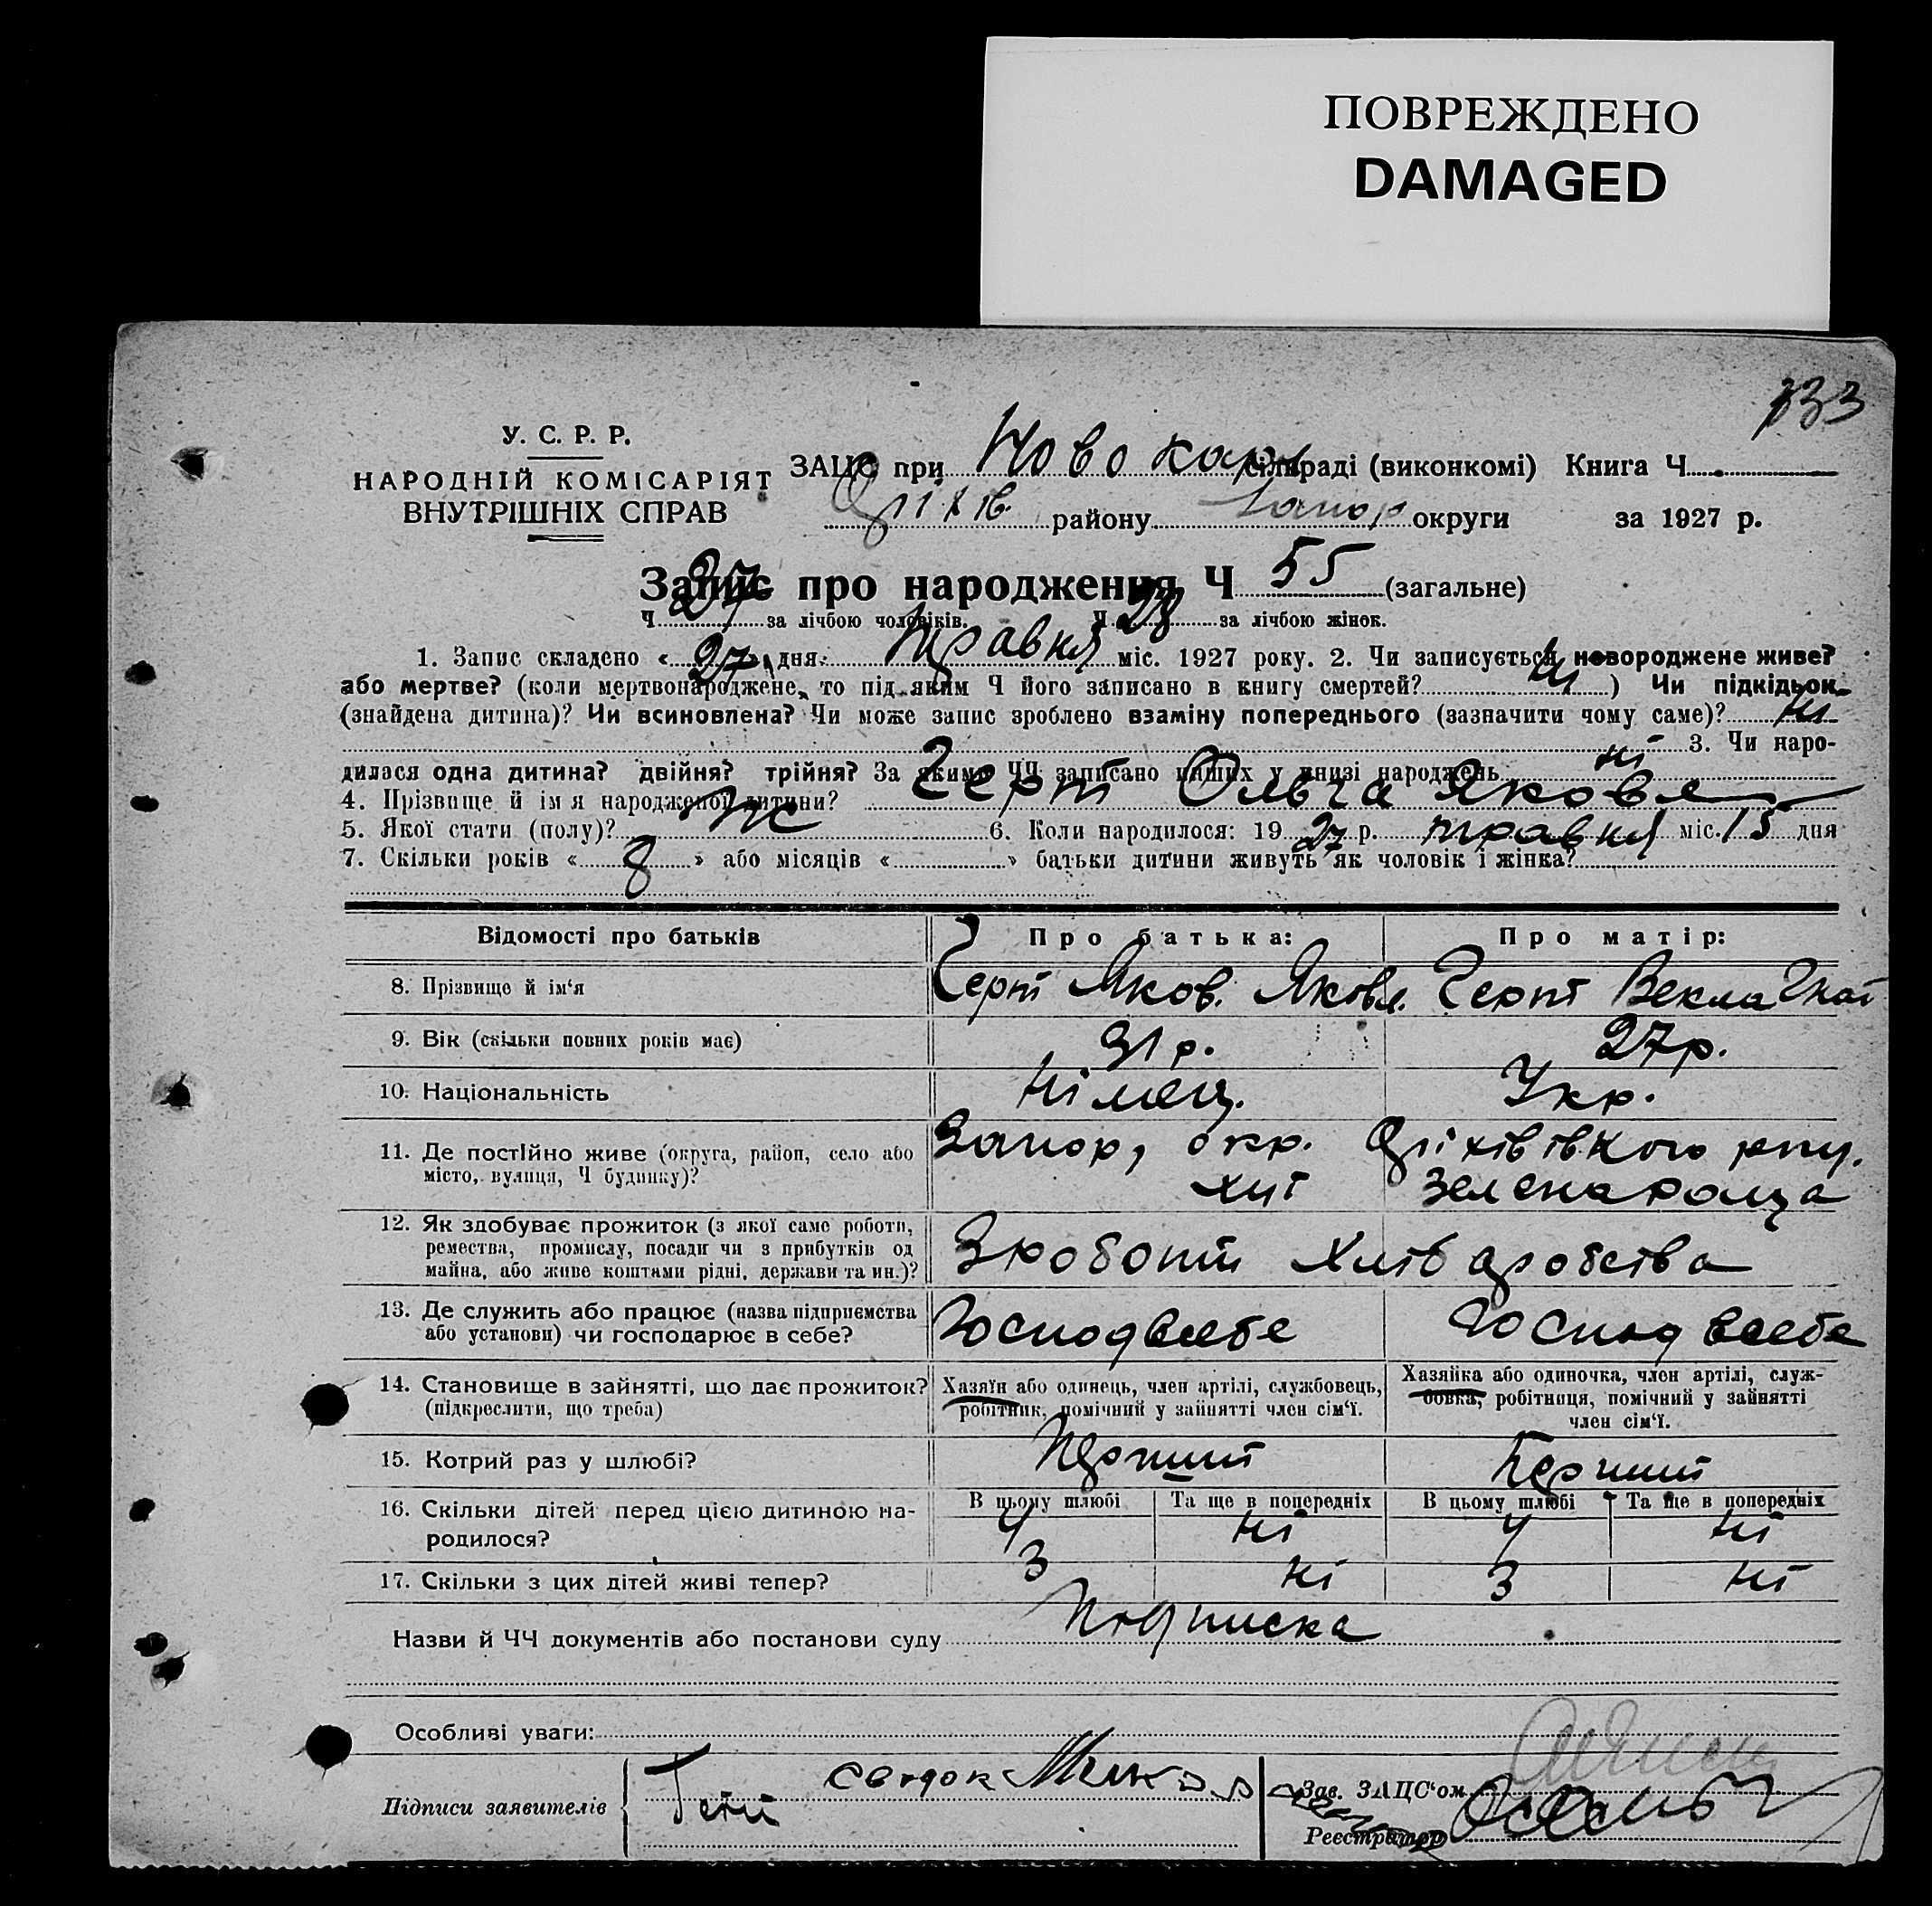 ПОВРЕЖДЕНО
DAMAGED
333
У. С. Р. Р.
НАРОДНІЙ КОМІСАРІЯТ
ВНУТРІШНІХ СПРАВ
ЗАЦС при Ново Кар сільраді (виконкомі) Книга Ч
Оріхів. району Запор округи за 1927 р.
Запис про народження Ч 55 (загальне)
Ч 27 за лічбою чоловіків. Ч 28 за лічбою жінок.
1. Запис складено « 27 » дня травня міс. 1927 року. 2. Чи записується новороджене живе?
або мертве? (коли мертвонароджене, то під яким Ч його записано в книгу смертей? ні ) Чи підкідьок
(знайдена дитина)? Чи всиновлена? Чи може запис зроблено взаміну попереднього (зазначити чому саме)? ні
ні 3. Чи наро-
дилася одна дитина? двійня? трійня? За якими ЧЧ записано инших у книзі народжень
4. Прізвище й ім я народженої дитини? Герт Ольга Яковл
5. Якої стати (полу)? ж 6. Коли народилося: 19 27 р. травня міс. 15 дня
7. Скільки років « 8 » або місяців « » батьки дитини живуть як чоловік і жінка?
Відомості про батьків Про батька: Про матір:
8. Прізвище й ім'я Герт Яков. Яковл. Герт Векла Гнат
9. Вік (скільки повних років має) 31 р. 27 р.
10. Національність Німец. Укр.
11. Де постійно живе (округа, район, село або Запор, окр. Оріхівівкого рну.
місто, вулиця, Ч будинку)? хут Зеленароща
12. Як здобуває прожиток (з якої саме роботи,
ремества, промислу, посади чи з прибутків од З роботи хлібаробства
майна, або живе коштами рідні, держави та ин.)?
13. Де служить або працює (назва підприємства Господ в себе Господ в себе
або установи) чи господарює в себе?
14. Становище в зайнятті, що дає прожиток? Хазяїн або одинець, член артілі, службовець, Хазяйка або одиночка, член артілі, служ-
(підкреслити, що треба) робітник, помічний у зайнятті член сім'ї. бовка, робітниця, помічний у зайнятті
член сім'ї.
15. Котрий раз у шлюбі? Перший Перший
16. Скільки дітей перед цією дитиною на- В цьому шлюбі Та ще в попередніх В цьому шлюбі Та ще в попередніх
родилося? 4 ні 4 ні
17. Скільки з цих дітей живі тепер? 3 ні 3 ні
Назви й ЧЧ документів або постанови суду Подписка
Особливі уваги:
Підписи заявителів Герт свидок
Зав. ЗАЦС'ом
Реєстратор